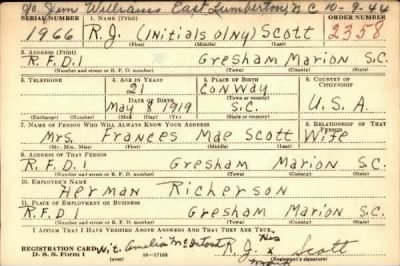 c/o Jim Williams East Lumberton, N C 10-9-44
SERIAL NUMBER 1. NAME (Print) ORDER NUMBER
1966 R.J. (Initials olny) Scott 2358
(First) (Middle) (Last)
2. ADDRESS (Print)
R.F.D.1 Gresham Marion S.C.
(Number and street or R. F. D. number) (Town) (County) (State)
3. TELEPHONE 4. AGE IN YEARS 5. PLACE OF BIRTH 6. COUNTRY OF CITIZENSHIP
21 Conway
DATE OF BIRTH (Town or county)
May 8 1919 S.C. U.S.A.
(Exchange) (Number) (Mo.) (Day) (Yr.) (State or country)
7. NAME OF PERSON WHO WILL ALWAYS KNOW YOUR ADDRESS 8. RELATIONSHIP OF THAT PERSON
Mrs. Frances Mae Scott Wife
(Mr., Mrs., Miss) (First) (Middle) (Last)
9. ADDRESS OF THAT PERSON
R.F.D.1 Gresham Marion S.C.
(Number and street or R. F. D. number) (Town) (County) (State)
10. EMPLOYER'S NAME
Herman Richerson
11. PLACE OF EMPLOYMENT OR BUSINESS
R.F.D 1 Gresham Marion S.C.
(Number and street or R. F. D. number) (Town) (County) (State)
I AFFIRM THAT I HAVE VERIFIED ABOVE ANSWERS AND THAT THEY ARE TRUE.
REGISTRATION CARD Wit. Amelia McIntosh R.J. His x Scott
D. S. S. Form 1 16—17105 Mark (Registrant's signature)